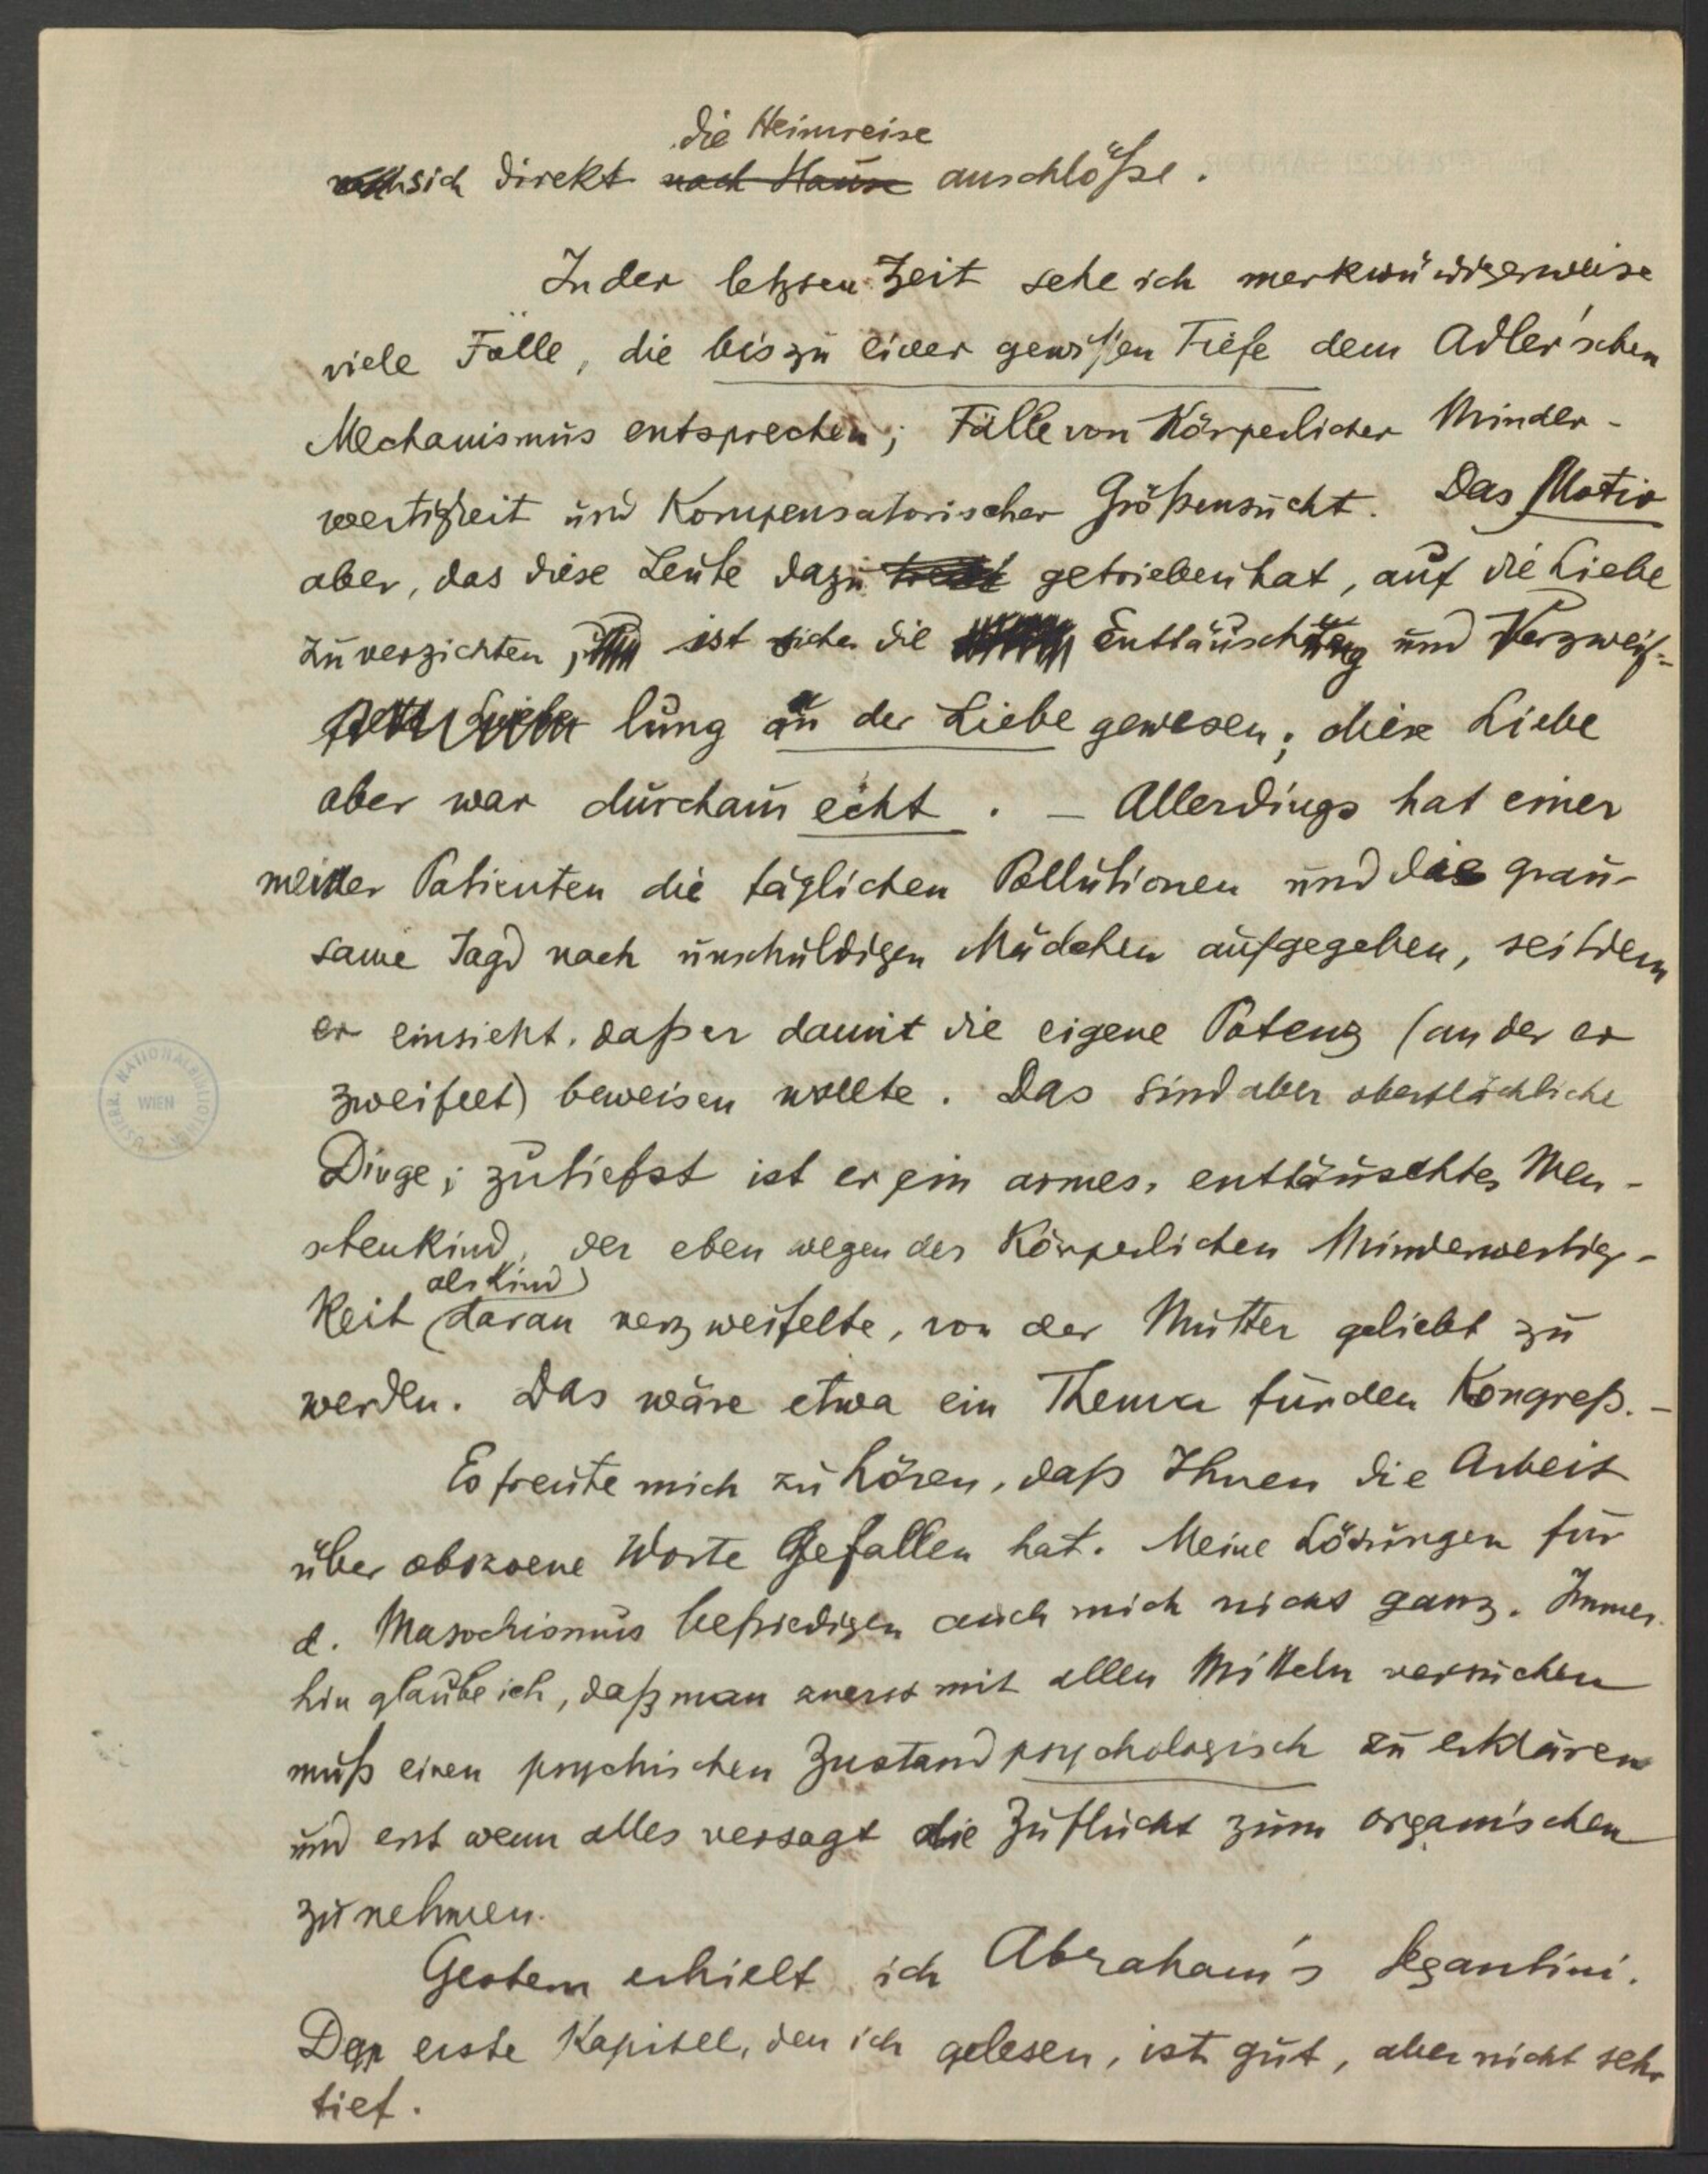 die Heimreise
sich direkt nach Hause anschlöße.
In der letzten Zeit sehe ich merkwürdigerweise
viele Fälle, die bis zu einer gewißen Tiefe dem Adler'schen
Mechanismus entsprechen; Fälle von Körperlicher Minder-
wertigkeit und Kompensatorischer Größensucht. Das Motiv
aber, das diese Leute dazu getrieben hat, auf die Liebe
zu verzichten, ist sicher die Enttäuschung und Verzweif-
lung an der Liebe gewesen; diese Liebe
aber war durchaus echt. – Allerdings hat einer
meiner Patienten die täglichen Pollutionen und die grau-
same Jagd nach unschuldigen Mädchen aufgegeben, seitdem
er einsieht, daß er damit die eigene Potenz (an der er
zweifelt) beweisen wollte. Das sind aber oberflächliche
Dinge; zutiefst ist er ein armes, enttäuschtes Men-
schenkind, der eben wegen der Körperlichen Minderwertig-
als Kind
Keit daran verzweifelte, von der Mutter geliebt zu
werden. Das wäre etwa ein Thema für den Kongreß. –
Es freute mich zu hören, daß Ihnen die Arbeit
über obszoene Worte Gefallen hat. Meine Lösungen für
d. Masochismus befriedigen auch mich nicht ganz. Immer-
hin glaube ich, daß man zuerst mit allen Mitteln versuchen
muß einen psychischen Zustand psychologisch zu erklären
und erst wenn alles versagt die Zuflucht zum organischen
zu nehmen.
Gestern erhielt ich Abraham's Segantini.
Der erste Kapitel, den ich gelesen, ist gut, aber nicht sehr
tief.
ÖSTERR. NATIONALBIBLIOTHEK
WIEN